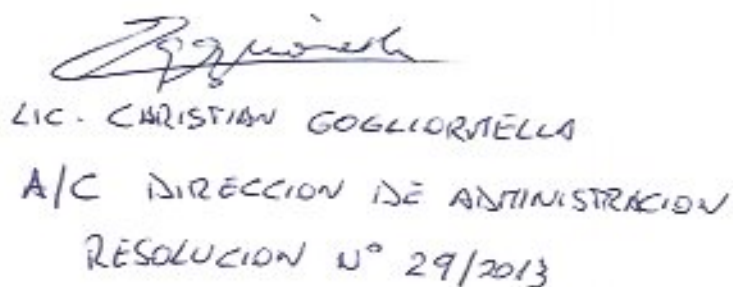 LIC. CHRISTIAN GOGLIORMELLA
A/C DIRECCION DE ADMINISTRACION
RESOLUCION N° 29/2013